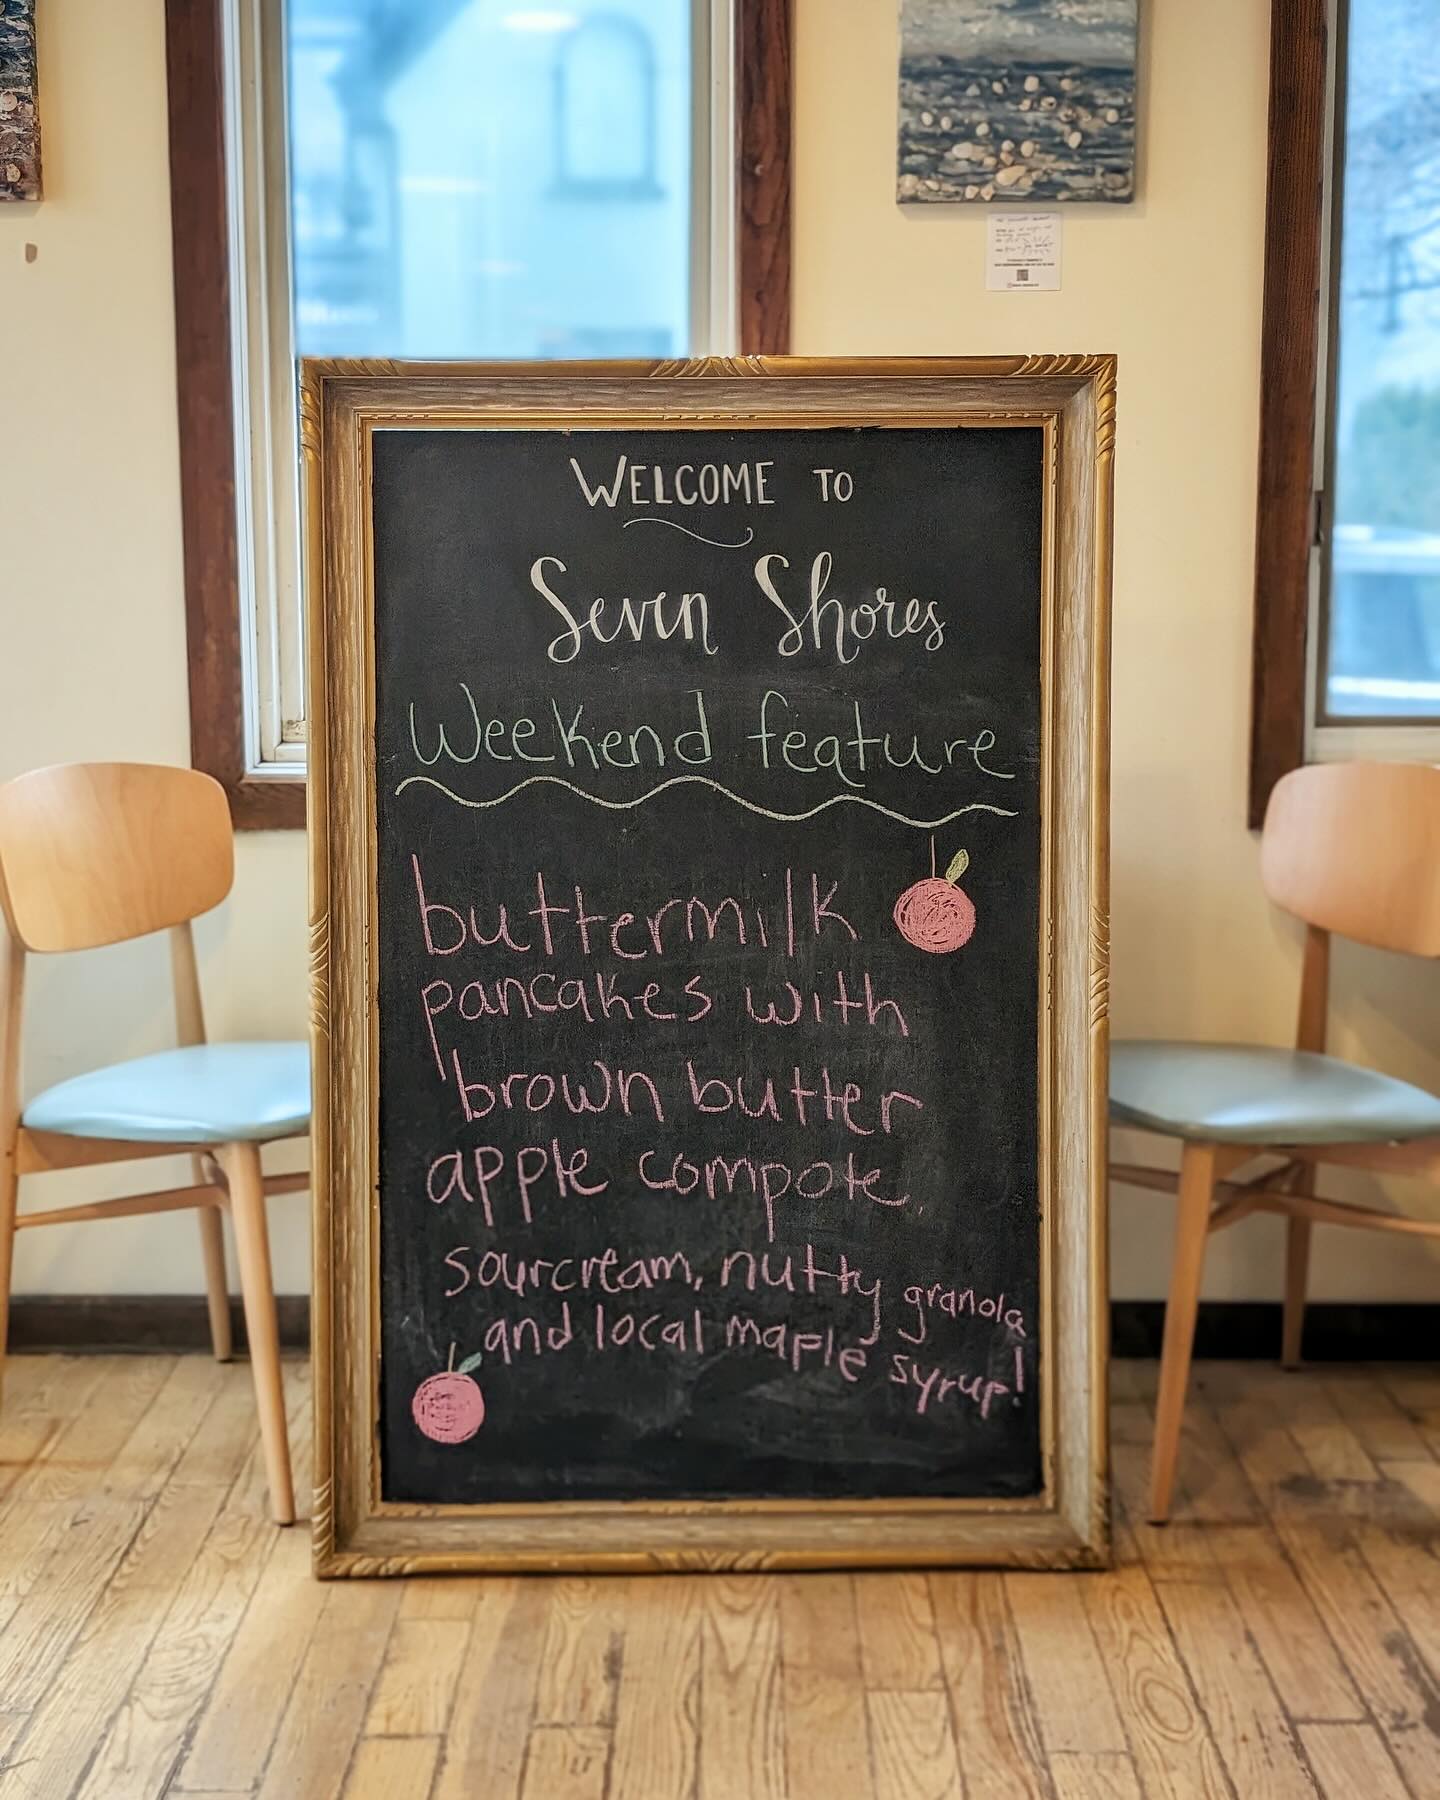 WELCOME TO
Seven Shores
Weekend feature
buttermilk
pancakes with
brown butter
apple compote,
sourcream, nutty granola
and local maple syrup!